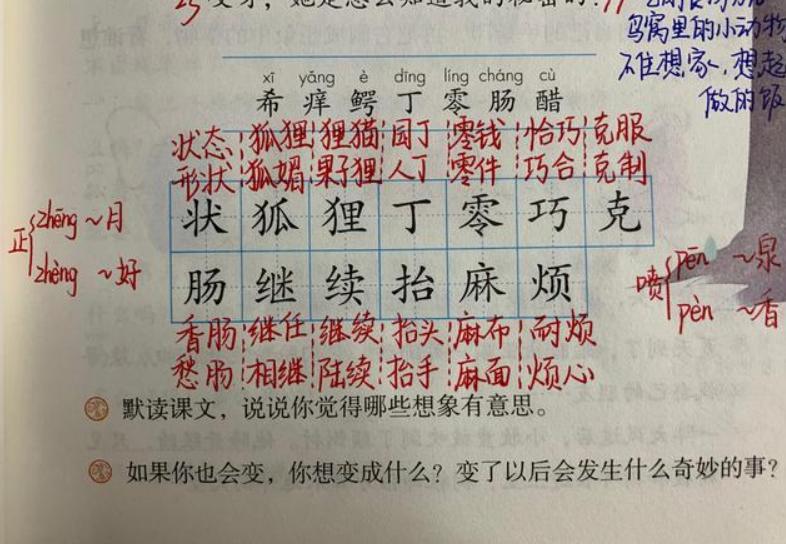 变身,她是怎么知道我的秘密的?
鸟窝里的小动物
不住想家、想起
做的饭
xī yǎng è dīng líng cháng cù
希 痒 鳄 丁 零 肠 醋
状态 狐狸 狸猫 园丁 零钱 恰巧 克服
形状 狐媚 果子狸 人丁 零件 巧合 克制
状 狐 狸 丁 零 巧 克
正 zhēng ~月
zhèng ~好
肠 继 续 抬 麻 烦
喷 pēn ~泉
pèn ~香
香肠 继任 继续 抬头 麻布 耐烦
愁肠 相继 陆续 抬手 麻面 烦心
默读课文,说说你觉得哪些想象有意思。
如果你也会变,你想变成什么?变了以后会发生什么奇妙的事?